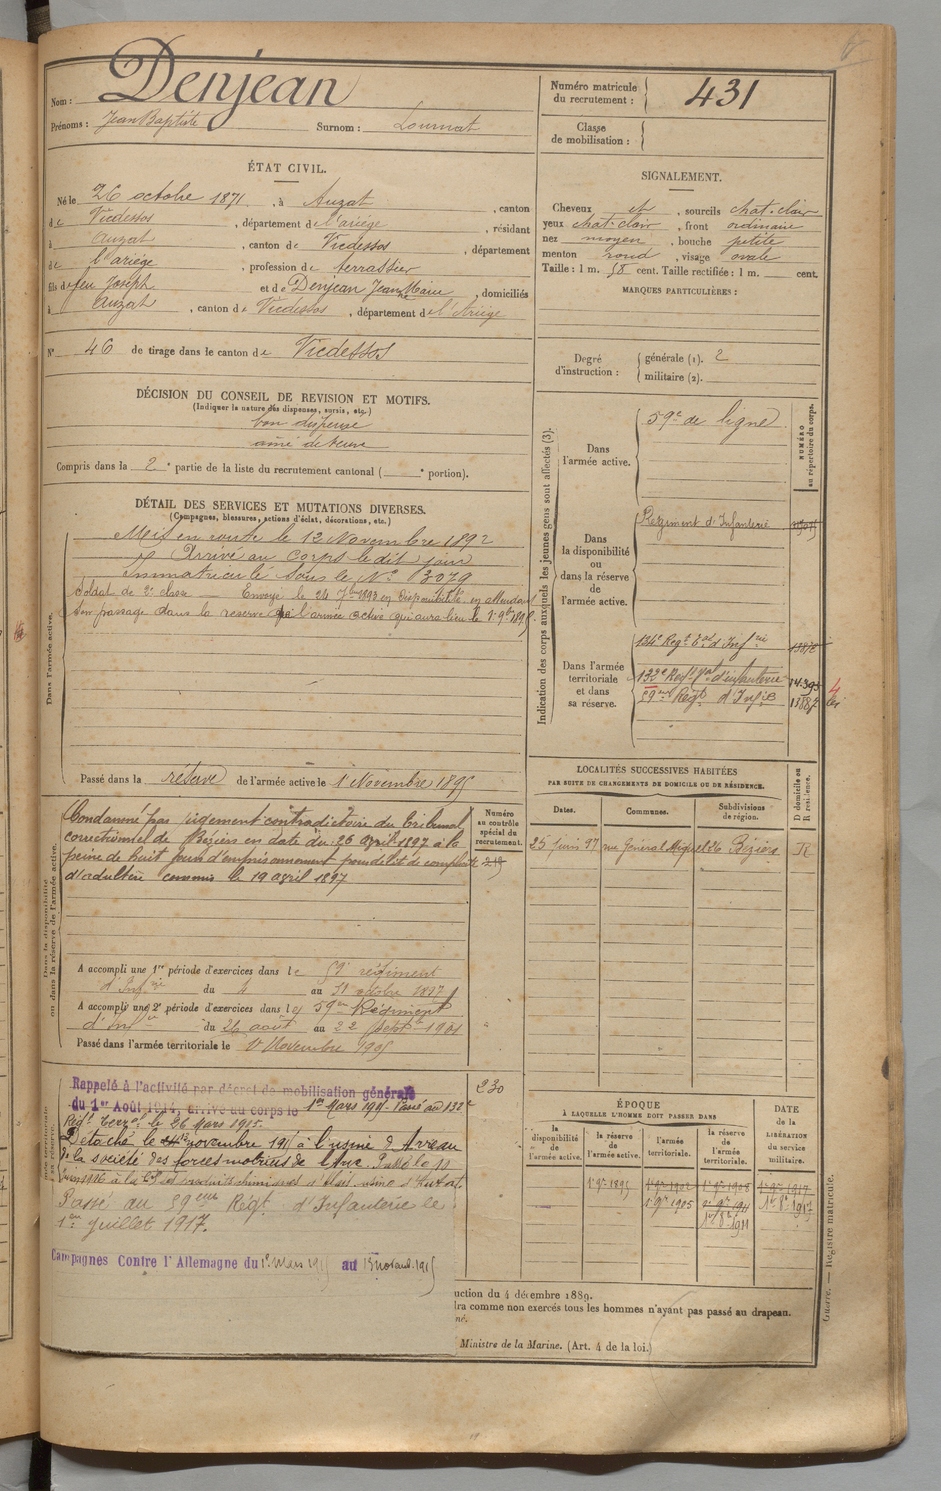 Nom : Denjean
Prénoms : Jean Baptiste Surnom : Lournat
Numéro matricule du recrutement : 431
Classe de mobilisation :
ÉTAT CIVIL.
Né le 26 octobre 1871, à Auzat, canton
de Vicdessos, département de l'ariège, résidant
à auzat, canton de Vicdessos, département
de l'ariège, profession de terrassier
fils de feu Joseph et de Denjean Jeanne Marie, domiciliés
à Auzat, canton de Vicdessos, département de l'Ariège
N° 46 de tirage dans le canton de Vicdessos
SIGNALEMENT.
Cheveux et, sourcils chat-clair
yeux chat-clair, front ordinaire
nez moyen, bouche petite
menton rond, visage ovale
Taille : 1 m. 58 cent. Taille rectifiée : 1 m. cent.
MARQUES PARTICULIÈRES :
Degré d'instruction : générale (1). 2
militaire (2).
DÉCISION DU CONSEIL DE REVISION ET MOTIFS.
(Indiquer la nature des dispenses, sursis, etc.)
bon dispensé
aîné de veuve
Compris dans la 2e partie de la liste du recrutement cantonal ( e portion).
DÉTAIL DES SERVICES ET MUTATIONS DIVERSES.
(Campagnes, blessures, actions d'éclat, décorations, etc.)
Dans l'armée active.
Mis en route le 12 Novembre 1892
Arrivé au corps le dit jour
Immatriculé sous le N° 3079
Soldat de 2e classe — Envoyé le 24 7bre 1893 en Disponibilité en attendant
son passage dans la reserve de l'armée active qui aura lieu le 1 9bre 1895
Passé dans la réserve de l'armée active le 1 Novembre 1895
Indication des corps auxquels les jeunes gens sont affectés (3).
NUMÉRO au répertoire du corps.
Dans l'armée active.
59e de ligne
Dans la disponibilité ou dans la réserve de l'armée active.
Régiment d'Infanterie
Dans l'armée territoriale et dans sa réserve.
134e Regt Tal d'Infrie
132e Regt Tal d'infanterie 14.393
59eme Régt d'Infie 13887
LOCALITÉS SUCCESSIVES HABITÉES
PAR SUITE DE CHANGEMENTS DE DOMICILE OU DE RÉSIDENCE.
Dates. Communes. Subdivisions de région. D domicile ou R résidence.
25 Juin 97 rue Général Miquel 26 Béziers R
Dans la disponibilité ou dans la réserve de l'armée active.
Numéro au contrôle spécial du recrutement.
Condamné par jugement contradictoire du Tribunal
correctionnel de Béziers en date du 26 avril 1897 à la
peine de huit jours d'emprisonnement pour délit de complicité
d'adultère commis le 19 avril 1897
A accompli une 1re période d'exercices dans le 59e régiment
d'Infrie du 4 au 31 octobre 1897
A accompli une 2e période d'exercices dans le 59em Régiment
d'Infie du 26 août au 22 septe 1901
Passé dans l'armée territoriale le 1er Novembre 1905
230
Rappelé à l'activité par décret de mobilisation générale
du 1er Août 1914, arrivé au corps le 1er Mars 1915. Passé au 132e
Régt Terral le 26 Mars 1915.
Détaché le novembre 1915 à l'usine d'Arreau
de la société des forces motrices de
Passé au 59eme Régt d'Infanterie le
1er juillet 1917.
Campagnes Contre l'Allemagne du 1er Mars 1915 au
ÉPOQUE
À LAQUELLE L'HOMME DOIT PASSER DANS
la disponibilité de l'armée active.
la réserve de l'armée active.
l'armée territoriale.
la réserve de l'armée territoriale.
DATE de la LIBÉRATION du service militaire.
1er 9bre 1895 1er 9bre 1902 1er 9bre 1908 1er 9bre 1917
1er 9bre 1905 1er 9bre 1911 1er 8bre 1917
1er 8bre 1911
uction du 4 décembre 1889.
dra comme non exercés tous les hommes n'ayant pas passé au drapeau.
né.
Ministre de la Marine. (Art. 4 de la loi.)
Guerre. — Registre matricule.